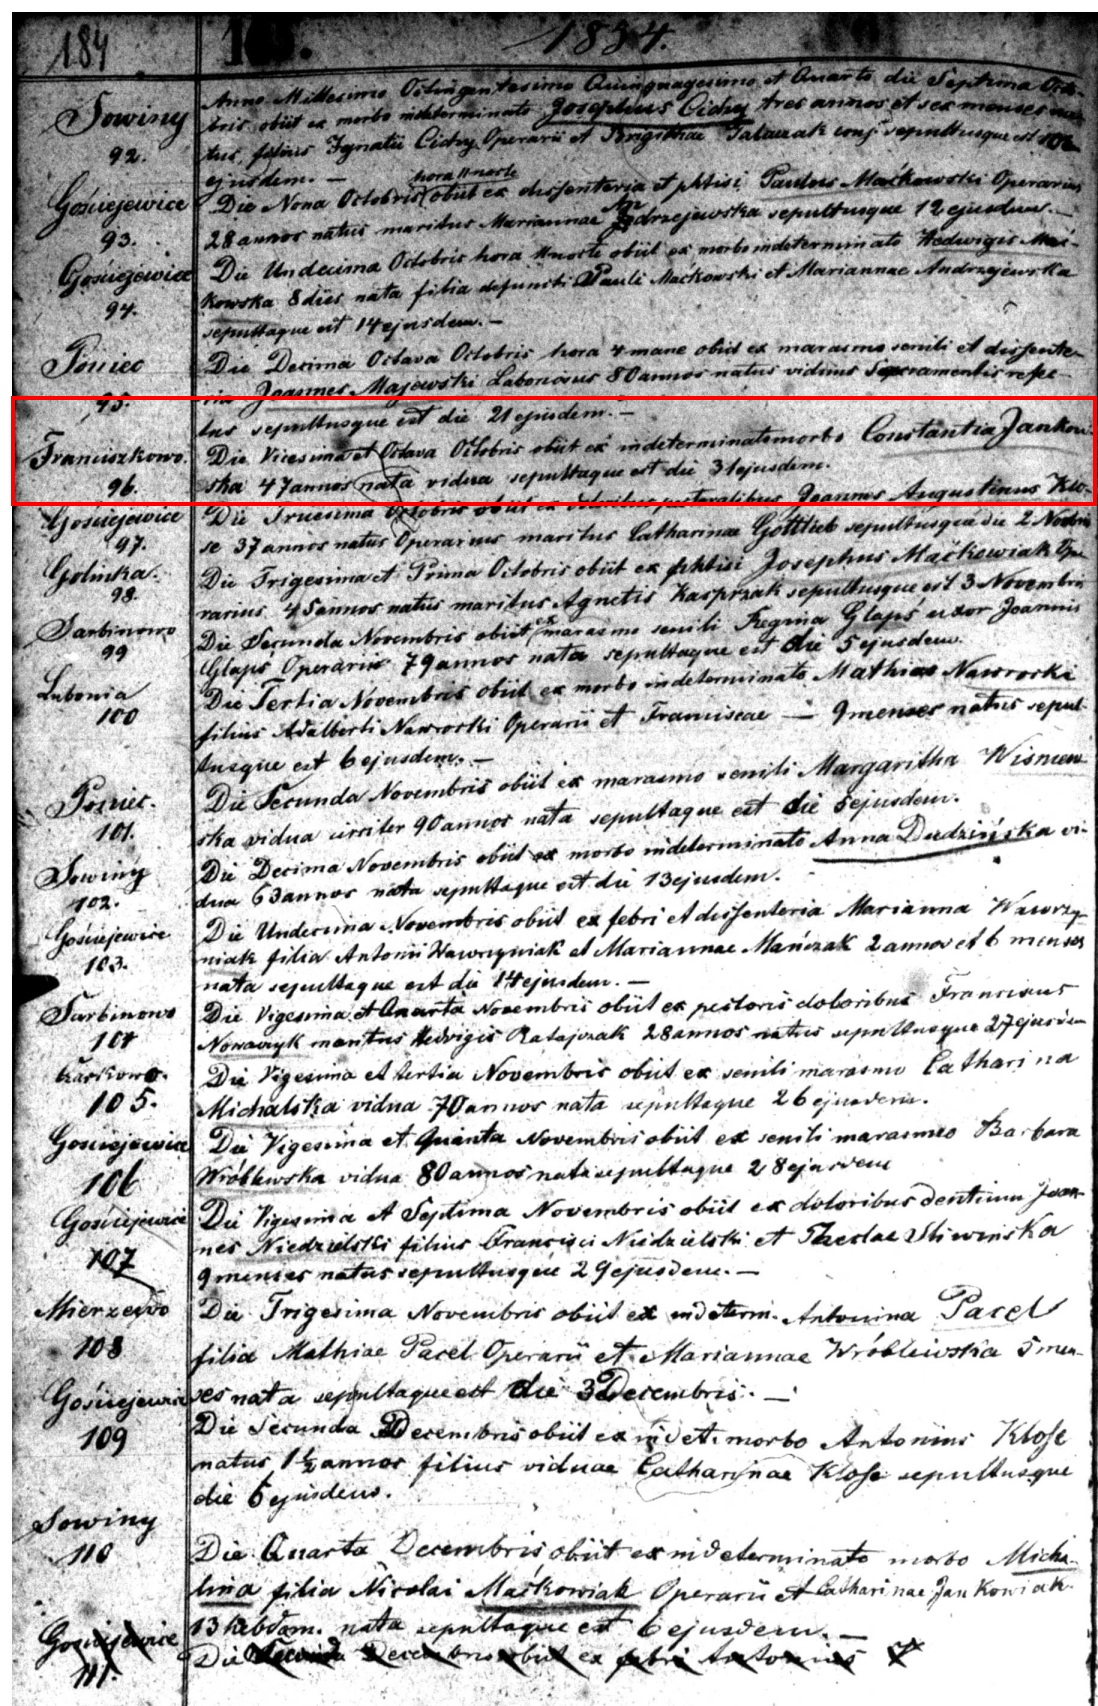 184
1854.
Anno Millesimo Octingentesimo Quinquagesimo et Quarto die Septima Octo-
Sowiny
bris obiit ex morbo indeterminato Josephus Cichy tres annos et sex menses na-
92.
tus, filius Ignatii Cichy Operarii et Brigithae Talaczak conj. sepultusque est
ejusdem. —
hora 11 nocte
Gościejewice
Die Nona Octobris obiit ex dissenteria et phtisi Paulus Maćkowski Operarius
93.
28 annos natus maritus Mariannae Andrzejewska sepultusque 12 ejusdem. —
Gościejewice
Die Undecima Octobris hora nocte obiit ex morbo indeterminato Hedwigis Mać-
94.
kowska 8 dies nata filia defuncti Pauli Maćkowski et Mariannae Andrzejewska
sepultaque est 14 ejusdem. —
Poniec
Die Decima Octava Octobris hora 4 mane obiit ex marasmo senili et dissente-
95.
ria Joannes Majewski Laboriosus 80 annos natus viduus Sacramentis refec-
tus sepultusque est die 21 ejusdem. —
Franciszkowo.
Die Vicesima et Octava Octobris obiit ex indeterminato morbo Constantia Jankow-
96.
ska 47 annos nata vidua sepultaque est die 31 ejusdem.
Gościejewice
Die Tricesima Octobris obiit ex doloribus pectoralibus Joannes Augustinus Klo-
97.
se 37 annos natus Operarius maritus Catharinae Gottlieb sepultusque die 2 Novbris
Golinka.
Die Trigesima et Prima Octobris obiit ex phtisi Josephus Maćkowiak Ope-
98.
rarius 45 annos natus maritus Agnetis Kasprzak sepultusque est 3 Novembris
Sarbinowo
Die Secunda Novembris obiit ex marasmo senili Regina Glapś uxor Joannis
99
Glapś Operarii 79 annos nata sepultaque est die 5 ejusdem.
Lubonia
Die Tertia Novembris obiit ex morbo indeterminato Mathias Nawrocki
100
filius Adalberti Nawrocki Operarii et Franciscae — 9 menses natus sepul-
tusque est 6 ejusdem. —
Poniec.
Die Secunda Novembris obiit ex marasmo senili Margaritha Wisniew-
101.
ska vidua circiter 90 annos nata sepultaque est die 5 ejusdem.
Sowiny
Die Decima Novembris obiit ex morbo indeterminato Anna Dudzińska vi-
102.
dua 63 annos nata sepultaque est die 13 ejusdem.
Gościejewice
Die Undecima Novembris obiit ex febri et dissenteria Marianna Wawrzy-
103.
niak filia Antonii Wawrzyniak et Mariannae Mańczak 2 annos et 6 menses
nata sepultaque est die 14 ejusdem. —
Sarbinowo
Die Vigesima et Quarta Novembris obiit ex pectoris doloribus Franciscus
104
Nowaczyk maritus Hedvigis Ratajczak 28 annos natus sepultusque 27 ejusdem
Die Vigesima et tertia Novembris obiit ex senili marasmo Catharina
105.
Michalska vidua 70 annos nata sepultaque 26 ejusdem.
Gościejewice
Die Vigesima et Quinta Novembris obiit ex senili marasmo Barbara
106
Wróblewska vidua 80 annos nata sepultaque 28 ejusdem
Gościejewice
Die Vigesima et Septima Novembris obiit ex doloribus dentium Joan-
107
nes Niedzielski filius Francisci Niedzielski et Theclae Sliwinska
9 menses natus sepultusque 29 ejusdem. —
Mierzejewo
Die Trigesima Novembris obiit ex indeterm. Antonina Pacel
108
filia Mathiae Pacel Operarii et Mariannae Wróblewska 5 men-
Gościejewice
ses nata sepultaque est die 3 Decembris. —
109
Die Secunda Decembris obiit ex indet. morbo Antonius Klose
natus 1½ annos filius viduae Catharinae Klose sepultusque
die 6 ejusdem.
Sowiny
110
Die Quarta Decembris obiit ex indeterminato morbo Micha-
lina filia Nicolai Maćkowiak Operarii et Catharinae Jankowiak
13 hebdom. nata sepultaque est 6 ejusdem. —
Gościejewice
Die Secunda Decembris obiit ex febri Antonius
111.